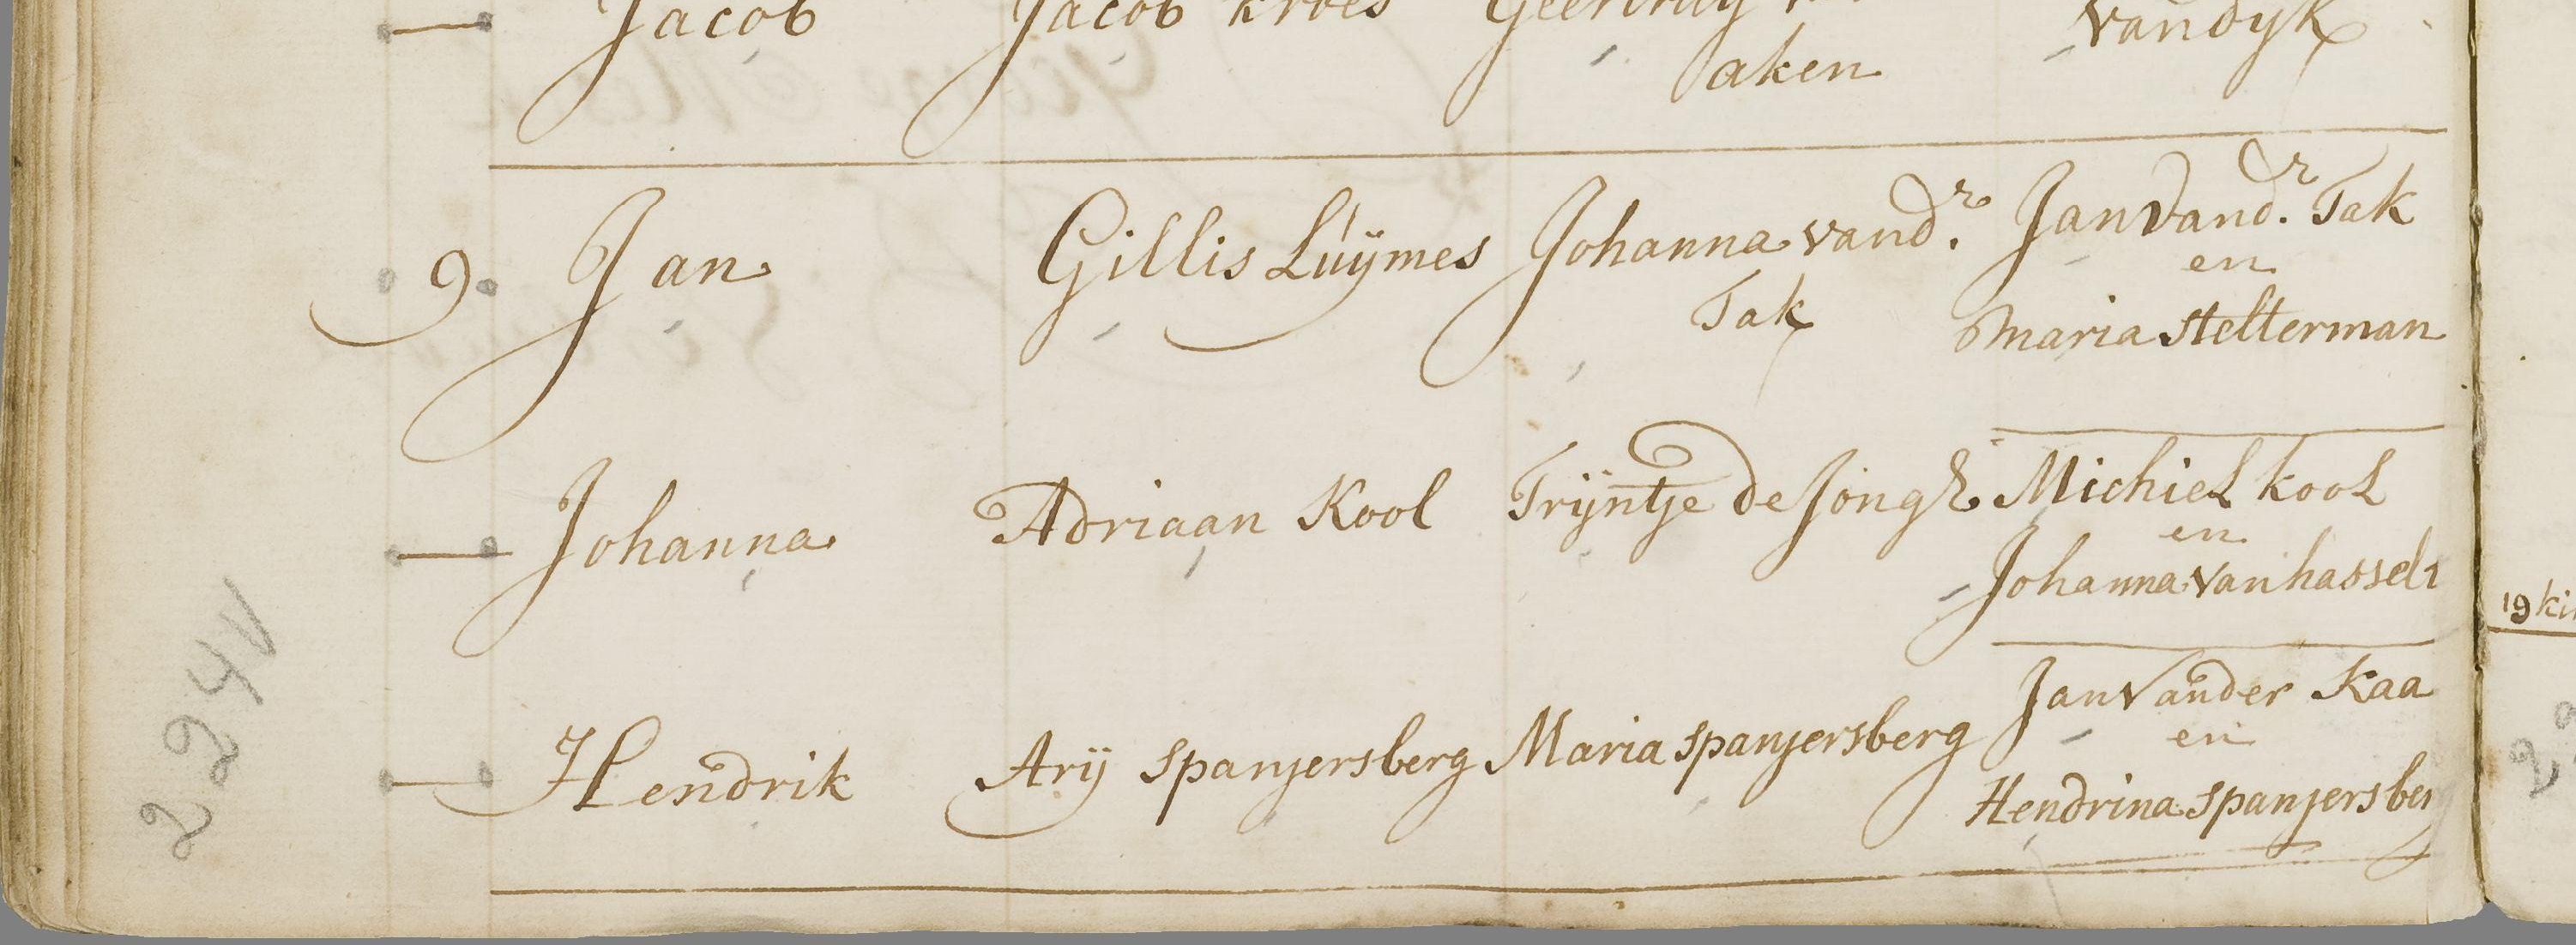 Jacob Jacob kroes Geertruy
aken vandyk
9. Jan Gillis Luÿmes Johanna vand.r Jan Vand.r Tak
Tak en
Maria stelterman
Johanna Adriaan Kool Trijntje de Jong Michiel kool
en
Johanna van hasselt
Hendrik Arij Spanjersberg Maria spanjersberg Jan Vander Kaa
en
Hendrina spanjersberg
224v
19 ki